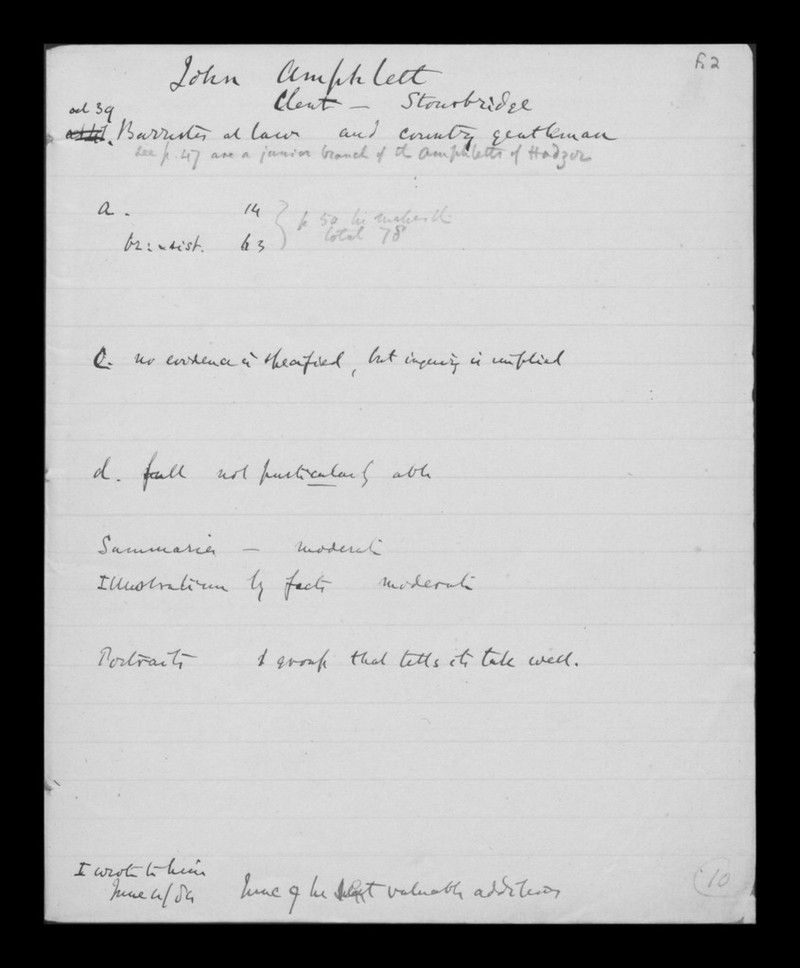 John Amphlett
Clent — Stourbridge
aet 39
Barrister at law and country gentleman
see p. 47 are a junior branch of the Amphletts of Hadzor
a. 14
br: & sist. 63
p 50 he makes the
total 78
C. no evidence is specified, but inquiry is implied
d. full not particularly able
Summaries — moderate
Illustration by facts moderate
Portraits 1 group that tells its tale well.
I wrote to him
June 4/84 June 9 he sent valuable additions
10